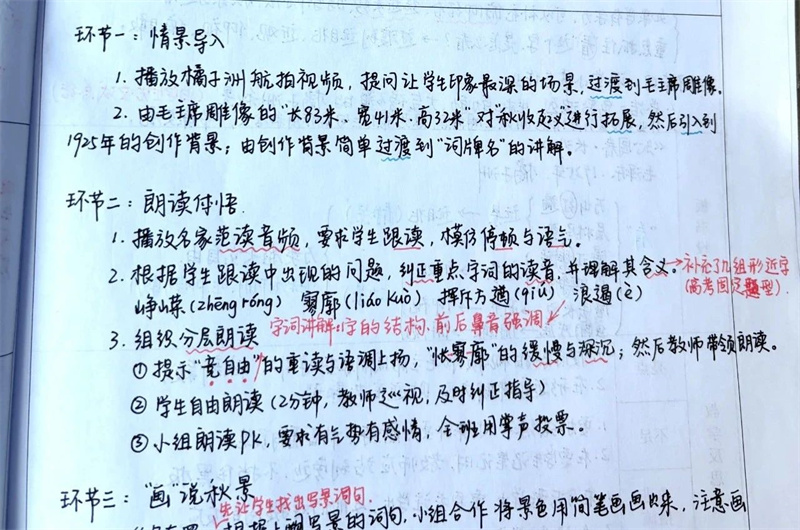 环节一：情景导入
1. 播放橘子洲航拍视频，提问让学生印象最深的场景，过渡到毛主席雕像。
2. 由毛主席雕像的“长83米、宽41米、高32米”对“秋收起义”进行拓展，然后引入到
1925年的创作背景；由创作背景简单过渡到“词牌名”的讲解。
环节二：朗读体悟
1. 播放名家范读音频，要求学生跟读，模仿停顿与语气。
2. 根据学生跟读中出现的问题，纠正重点字词的读音，并理解其含义。
补充了几组形近字
(高考固定题型)
峥嵘(zhēng róng) 寥廓(liáo kuò) 挥斥方遒(qiú) 浪遏(è)
字词讲解：字的结构、前后鼻音强调
3. 组织分层朗读
①提示“竞自由”的重读与语调上扬，“怅寥廓”的缓慢与深沉；然后教师带领朗读。
②学生自由朗读(2分钟，教师巡视，及时纠正指导)
③小组朗读PK，要求有气势有感情，全班用掌声投票。
环节三：“画”说秋景
先让学生找出写景词句.
写景的词句，小组合作将景色用简笔画画出来，注意画